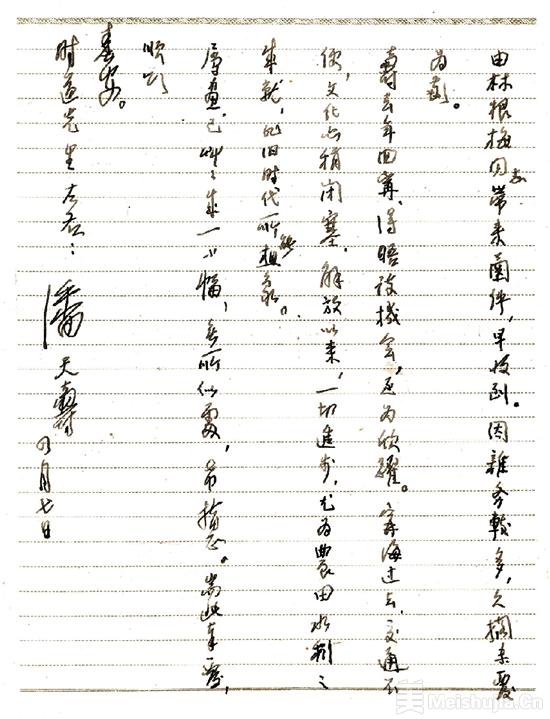 由林根梅同志带来兰件，早收到。因杂务较多，久搁未覆
为歉。
寿去年回宁，得晤谈机会，至为欣跃。宁海过去，交通不
便，文化亦稍闭塞，解放以来，一切进步，尤为农田水利之
成就，非旧时代所能想象。
属画已草草成一小幅，无所似处，希指正。耑此奉覆，
顺颂
春安。
时道先生左右：
潘天寿 四月七日
美 Meishujia.Cn